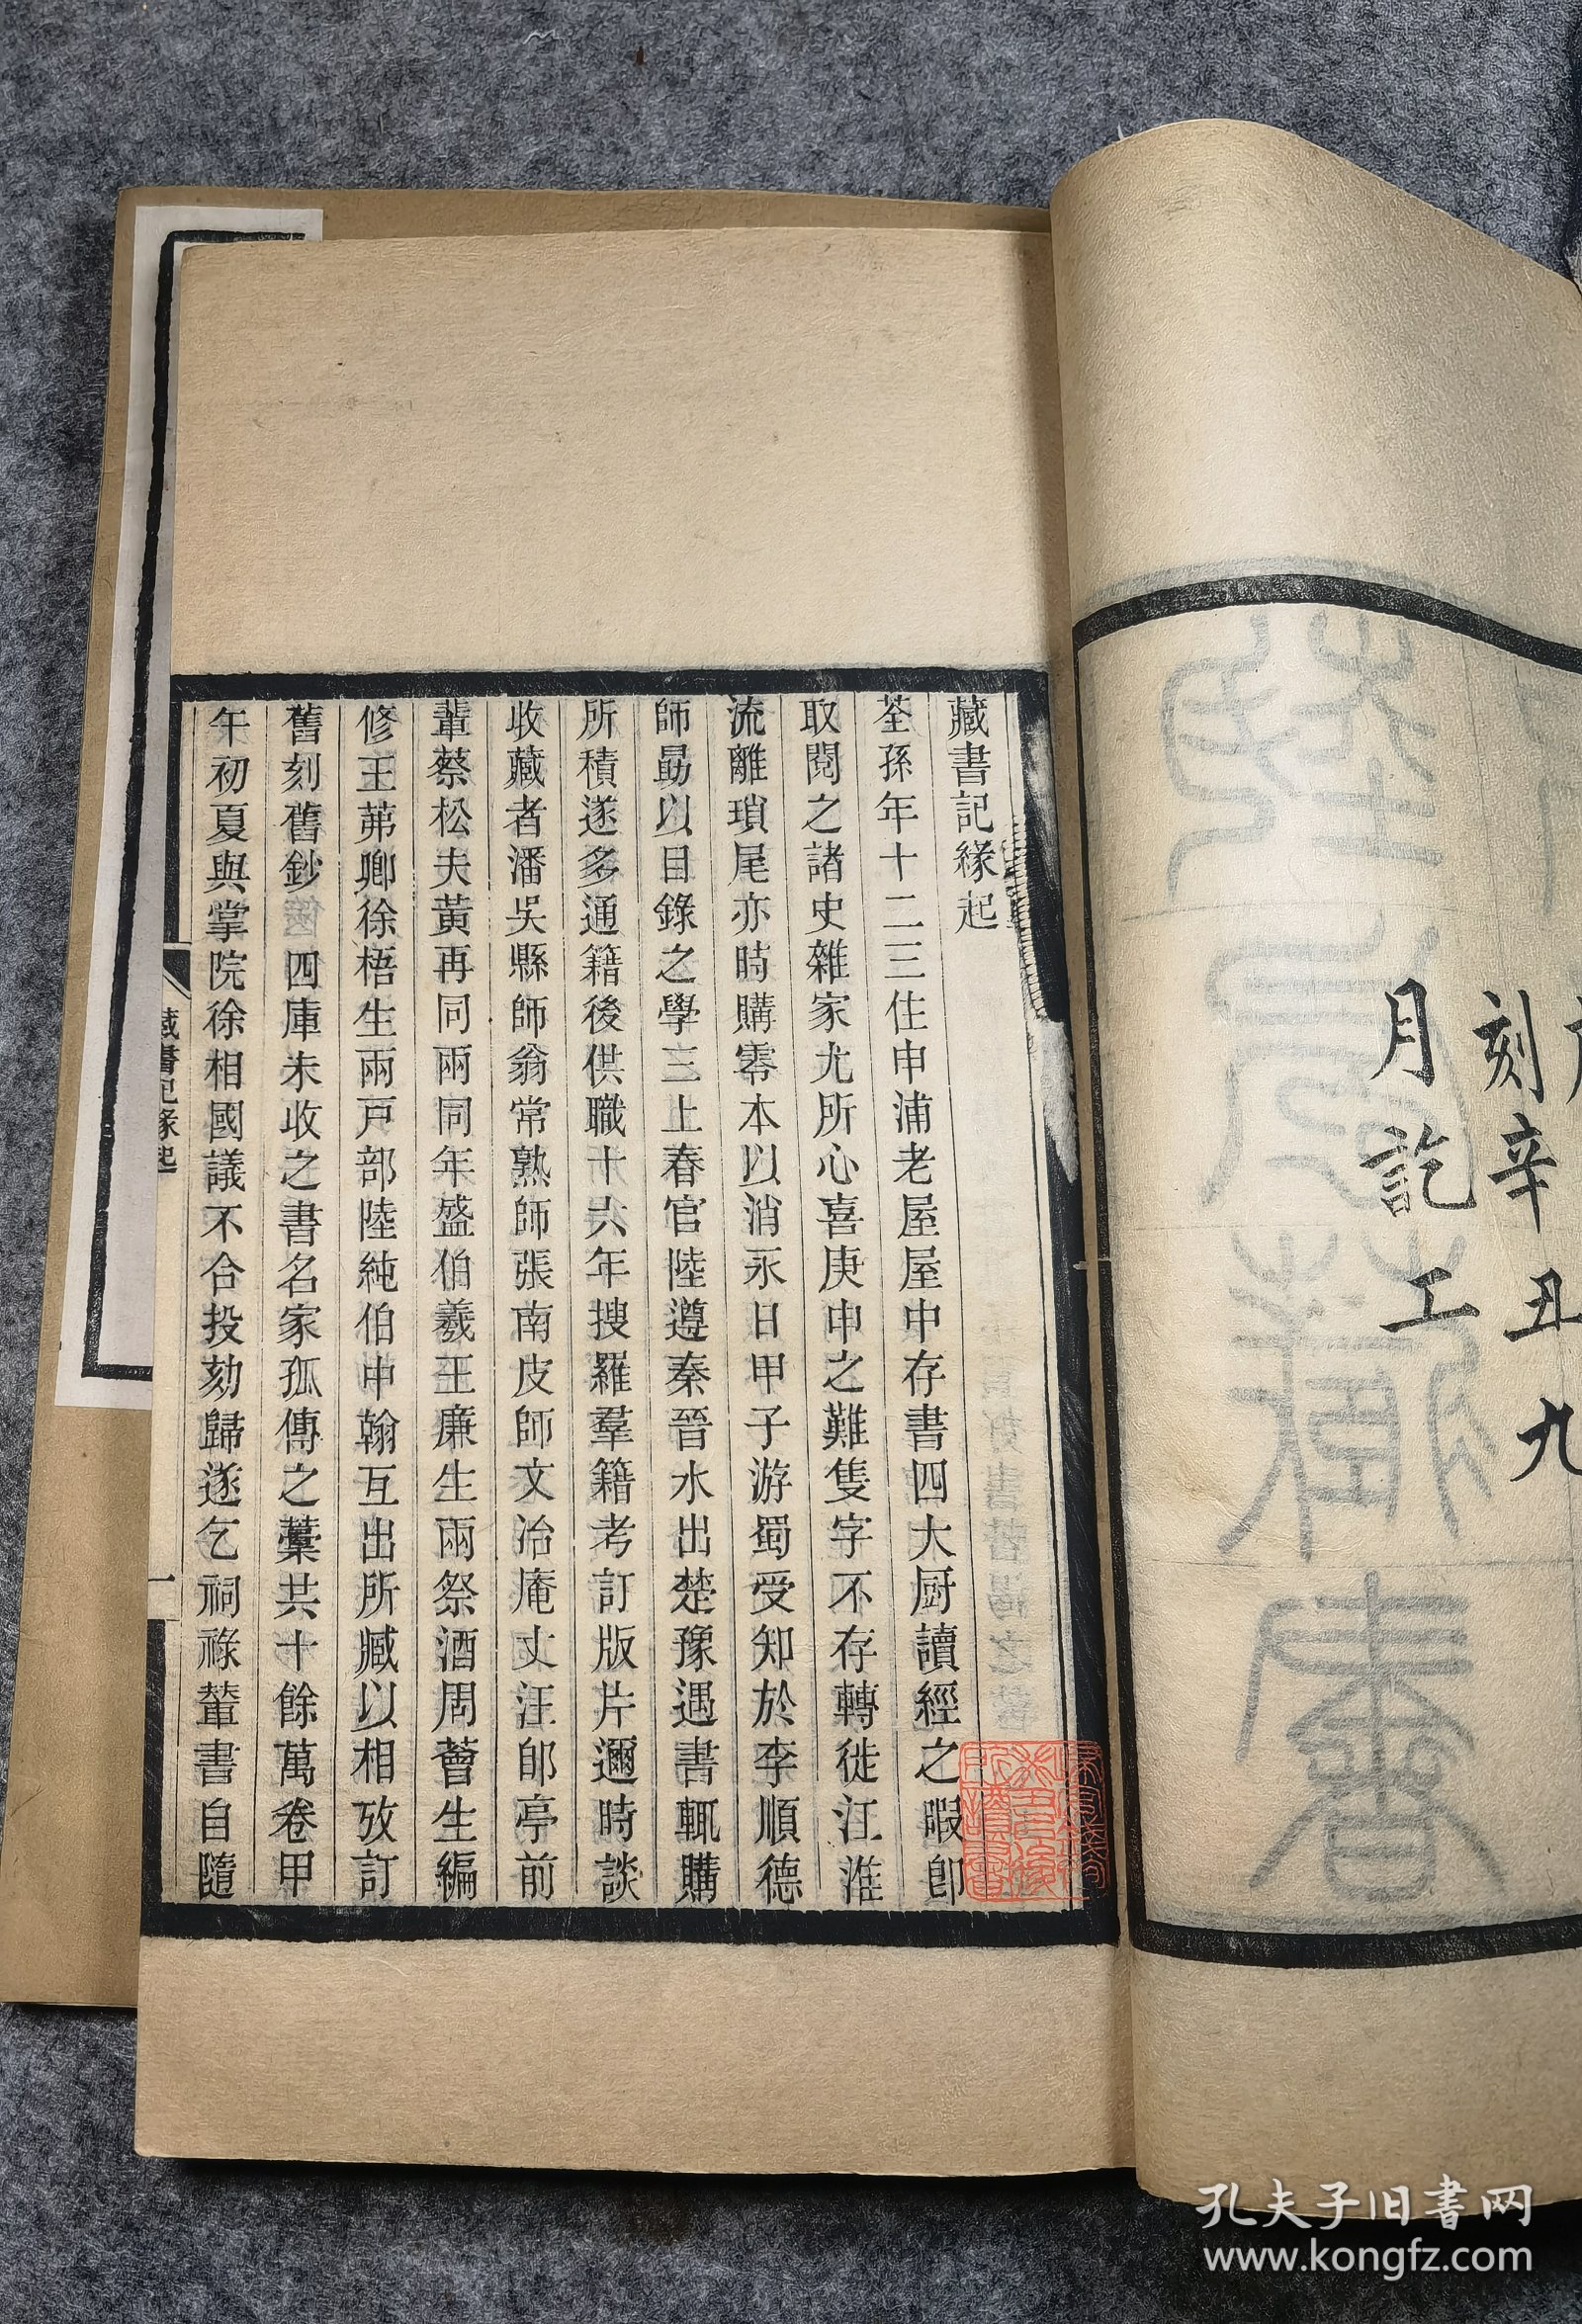 刻辛丑九
月訖工
藏書記緣起
荃孫年十二三住申浦老屋屋中存書四大厨讀經之暇卽
取閱之諸史雜家尤所心喜庚申之難隻字不存轉徙江淮
流離瑣尾亦時購零本以消永日甲子游蜀受知於李順德
師勗以目錄之學三上春官陸遵秦晉水出楚豫遇書輒購
所積遂多通籍後供職十六年搜羅羣籍考訂版片邇時談
收藏者潘吳縣師翁常熟師張南皮師文治庵丈汪郋亭前
輩蔡松夫黃再同兩同年盛伯羲王廉生兩祭酒周薈生編
修王茀卿徐梧生兩戸部陸純伯中翰互出所臧以相攷訂
舊刻舊鈔四庫未收之書名家孤傳之藁共十餘萬卷甲
午初夏與掌院徐相國議不合投劾歸遂乞祠祿輦書自隨
藏書記緣起
一
孔夫子旧書网
www.kongfz.com